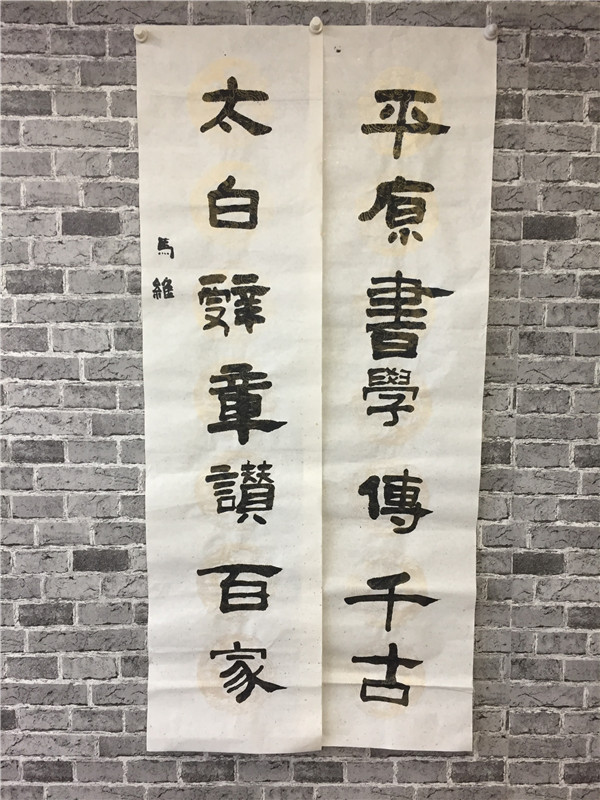 平原書學傳千古
太白辭章讚百家
馬維